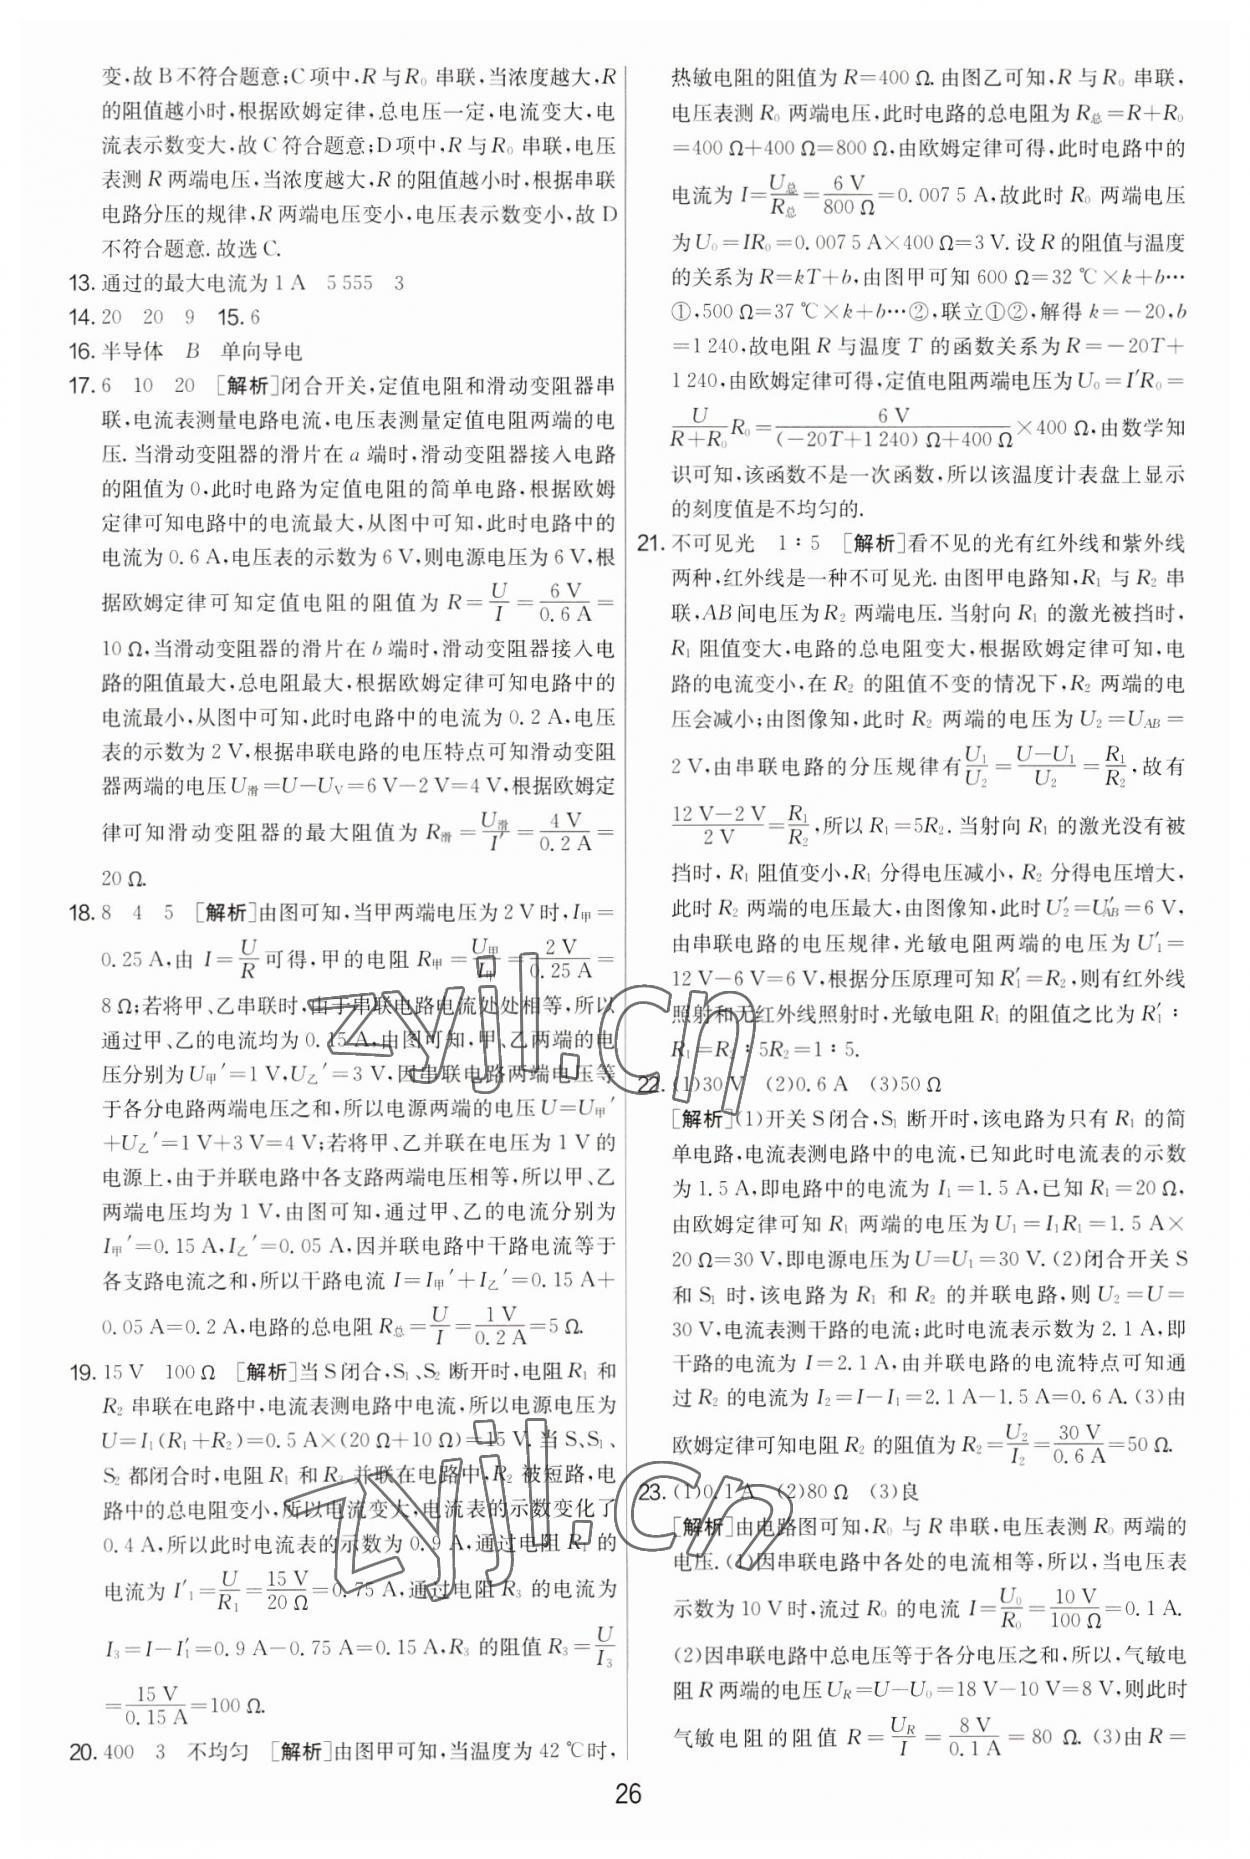 变,故B不符合题意;C项中,R与R₀串联,当浓度越大,R
的阻值越小时,根据欧姆定律,总电压一定,电流变大,电
流表示数变大,故C符合题意;D项中,R与R₀串联,电压
表测R两端电压,当浓度越大,R的阻值越小时,根据串联
电路分压的规律,R两端电压变小,电压表示数变小,故D
不符合题意.故选C.
13. 通过的最大电流为1 A 5 555 3
14. 20 20 9 15. 6
16. 半导体 B 单向导电
17. 6 10 20 [解析]闭合开关,定值电阻和滑动变阻器串
联,电流表测量电路电流,电压表测量定值电阻两端的电
压.当滑动变阻器的滑片在a端时,滑动变阻器接入电路
的阻值为0,此时电路为定值电阻的简单电路,根据欧姆
定律可知电路中的电流最大,从图中可知,此时电路中的
电流为0.6 A,电压表的示数为6 V,则电源电压为6 V,根
据欧姆定律可知定值电阻的阻值为R=U/I=6 V/0.6 A=
10 Ω,当滑动变阻器的滑片在b端时,滑动变阻器接入电
路的阻值最大,总电阻最大,根据欧姆定律可知电路中的
电流最小,从图中可知,此时电路中的电流为0.2 A,电压
表的示数为2 V,根据串联电路的电压特点可知滑动变阻
器两端的电压U滑=U-UV=6 V-2 V=4 V,根据欧姆定
律可知滑动变阻器的最大阻值为R滑=U滑/I′=4 V/0.2 A=
20 Ω.
18. 8 4 5 [解析]由图可知,当甲两端电压为2 V时,I甲=
0.25 A,由I=U/R可得,甲的电阻R甲=U甲/I甲=2 V/0.25 A=
8 Ω;若将甲、乙串联时,由于串联电路电流处处相等,所以
通过甲、乙的电流均为0.15 A,由图可知,甲、乙两端的电
压分别为U甲′=1 V,U乙′=3 V,因串联电路两端电压等
于各分电路两端电压之和,所以电源两端的电压U=U甲′
+U乙′=1 V+3 V=4 V;若将甲、乙并联在电压为1 V的
电源上,由于并联电路中各支路两端电压相等,所以甲、乙
两端电压均为1 V,由图可知,通过甲、乙的电流分别为
I甲′=0.15 A,I乙′=0.05 A,因并联电路中干路电流等于
各支路电流之和,所以干路电流I=I甲′+I乙′=0.15 A+
0.05 A=0.2 A,电路的总电阻R总=U/I=1 V/0.2 A=5 Ω.
19. 15 V 100 Ω [解析]当S闭合,S₁、S₂断开时,电阻R₁和
R₂串联在电路中,电流表测电路中电流,所以电源电压为
U=I₁(R₁+R₂)=0.5 A×(20 Ω+10 Ω)=15 V.当S、S₁、
S₂都闭合时,电阻R₁和R₃并联在电路中,R₂被短路,电
路中的总电阻变小,所以电流变大,电流表的示数变化了
0.4 A,所以此时电流表的示数为0.9 A,通过电阻R₁的
电流为I′₁=U/R₁=15 V/20 Ω=0.75 A,通过电阻R₃的电流为
I₃=I-I′₁=0.9 A-0.75 A=0.15 A,R₃的阻值R₃=U/I₃
=15 V/0.15 A=100 Ω.
20. 400 3 不均匀 [解析]由图甲可知,当温度为42 ℃时,
热敏电阻的阻值为R=400 Ω.由图乙可知,R与R₀串联,
电压表测R₀两端电压,此时电路的总电阻为R总=R+R₀
=400 Ω+400 Ω=800 Ω,由欧姆定律可得,此时电路中的
电流为I=U总/R总=6 V/800 Ω=0.007 5 A,故此时R₀两端电压
为U₀=IR₀=0.007 5 A×400 Ω=3 V.设R的阻值与温度
的关系为R=kT+b,由图甲可知600 Ω=32 ℃×k+b…
①,500 Ω=37 ℃×k+b…②,联立①②,解得k=-20,b
=1 240,故电阻R与温度T的函数关系为R=-20T+
1 240,由欧姆定律可得,定值电阻两端电压为U₀=I′R₀=
U/(R+R₀)R₀=6 V/((-20T+1 240) Ω+400 Ω)×400 Ω,由数学知
识可知,该函数不是一次函数,所以该温度计表盘上显示
的刻度值是不均匀的.
21. 不可见光 1∶5 [解析]看不见的光有红外线和紫外线
两种,红外线是一种不可见光.由图甲电路知,R₁与R₂串
联,AB间电压为R₂两端电压.当射向R₁的激光被挡时,
R₁阻值变大,电路的总电阻变大,根据欧姆定律可知,电
路的电流变小,在R₂的阻值不变的情况下,R₂两端的电
压会减小;由图像知,此时R₂两端的电压为U₂=UAB=
2 V,由串联电路的分压规律有U₁/U₂=(U-U₁)/U₂=R₁/R₂,故有
(12 V-2 V)/2 V=R₁/R₂,所以R₁=5R₂.当射向R₁的激光没有被
挡时,R₁阻值变小,R₁分得电压减小,R₂分得电压增大,
此时R₂两端的电压最大,由图像知,此时U′₂=U′AB=6 V,
由串联电路的电压规律,光敏电阻两端的电压为U′₁=
12 V-6 V=6 V,根据分压原理可知R′₁=R₂,则有红外线
照射和无红外线照射时,光敏电阻R₁的阻值之比为R′₁∶
R₁=R₂∶5R₂=1∶5.
22. (1)30 V (2)0.6 A (3)50 Ω
[解析](1)开关S闭合,S₁断开时,该电路为只有R₁的简
单电路,电流表测电路中的电流,已知此时电流表的示数
为1.5 A,即电路中的电流为I₁=1.5 A,已知R₁=20 Ω,
由欧姆定律可知R₁两端的电压为U₁=I₁R₁=1.5 A×
20 Ω=30 V,即电源电压为U=U₁=30 V.(2)闭合开关S
和S₁时,该电路为R₁和R₂的并联电路,则U₂=U=
30 V,电流表测干路的电流;此时电流表示数为2.1 A,即
干路的电流为I=2.1 A,由并联电路的电流特点可知通
过R₂的电流为I₂=I-I₁=2.1 A-1.5 A=0.6 A.(3)由
欧姆定律可知电阻R₂的阻值为R₂=U₂/I₂=30 V/0.6 A=50 Ω.
23. (1)0.1 A (2)80 Ω (3)良
[解析]由电路图可知,R₀与R串联,电压表测R₀两端的
电压.(1)因串联电路中各处的电流相等,所以,当电压表
示数为10 V时,流过R₀的电流I=U₀/R₀=10 V/100 Ω=0.1 A.
(2)因串联电路中总电压等于各分电压之和,所以,气敏电
阻R两端的电压UR=U-U₀=18 V-10 V=8 V,则此时
气敏电阻的阻值R=UR/I=8 V/0.1 A=80 Ω.(3)由R=
26
zyjl.cn
zyjl.cn